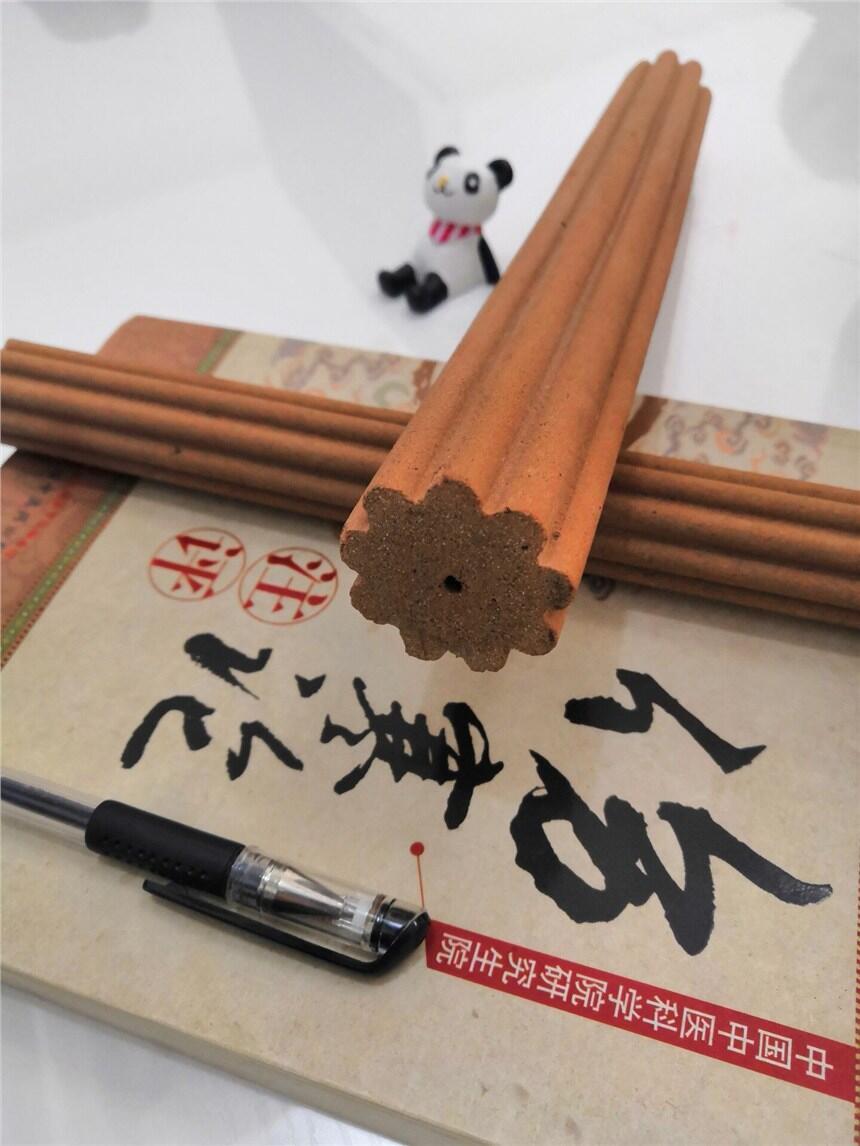 中国中医科学院研究生院
伤寒论
注评